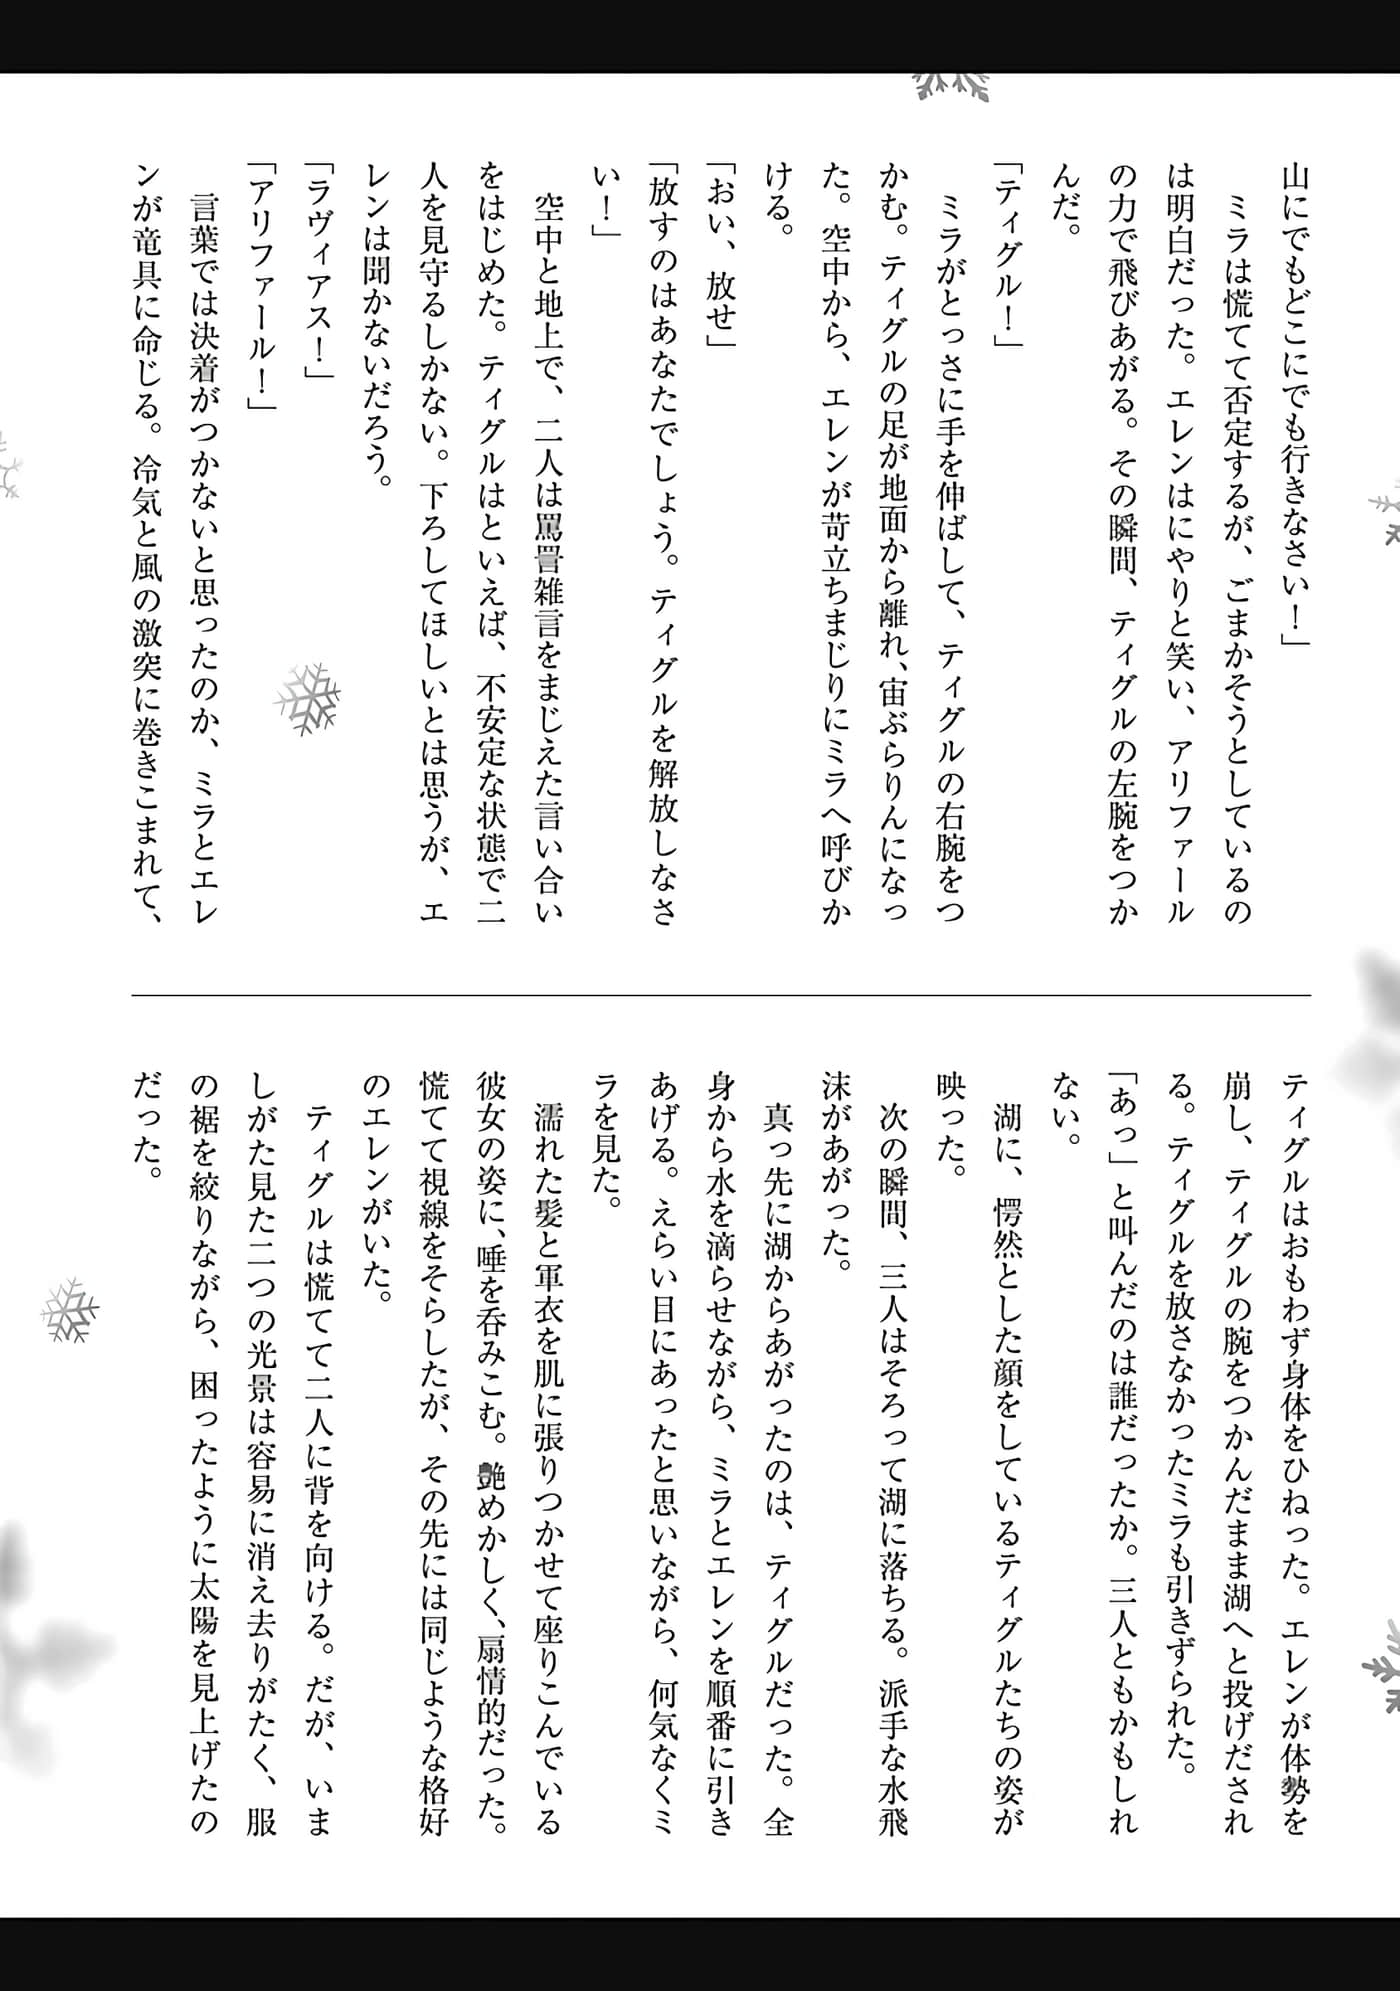 山にでもどこにでも行きなさい！」
　ミラは慌てて否定するが、ごまかそうとしているの
は明白だった。エレンはにやりと笑い、アリファール
の力で飛びあがる。その瞬間、ティグルの左腕をつか
んだ。
「ティグル！」
　ミラがとっさに手を伸ばして、ティグルの右腕をつ
かむ。ティグルの足が地面から離れ、宙ぶらりんになっ
た。空中から、エレンが苛立ちまじりにミラへ呼びか
ける。
「おい、放せ」
「放すのはあなたでしょう。ティグルを解放しなさ
い！」
　空中と地上で、二人は罵詈雑言をまじえた言い合い
をはじめた。ティグルはといえば、不安定な状態で二
人を見守るしかない。下ろしてほしいとは思うが、エ
レンは聞かないだろう。
「ラヴィアス！」
「アリファール！」
　言葉では決着がつかないと思ったのか、ミラとエレ
ンが竜具に命じる。冷気と風の激突に巻きこまれて、
ティグルはおもわず身体をひねった。エレンが体勢を
崩し、ティグルの腕をつかんだまま湖へと投げだされ
る。ティグルを放さなかったミラも引きずられた。
「あっ」と叫んだのは誰だったか。三人ともかもしれ
ない。
　湖に、愕然とした顔をしているティグルたちの姿が
映った。
　次の瞬間、三人はそろって湖に落ちる。派手な水飛
沫があがった。
　真っ先に湖からあがったのは、ティグルだった。全
身から水を滴らせながら、ミラとエレンを順番に引き
あげる。えらい目にあったと思いながら、何気なくミ
ラを見た。
　濡れた髪と軍衣を肌に張りつかせて座りこんでいる
彼女の姿に、唾を呑みこむ。艶めかしく、扇情的だった。
慌てて視線をそらしたが、その先には同じような格好
のエレンがいた。
　ティグルは慌てて二人に背を向ける。だが、いま
しがた見た二つの光景は容易に消え去りがたく、服
の裾を絞りながら、困ったように太陽を見上げたの
だった。